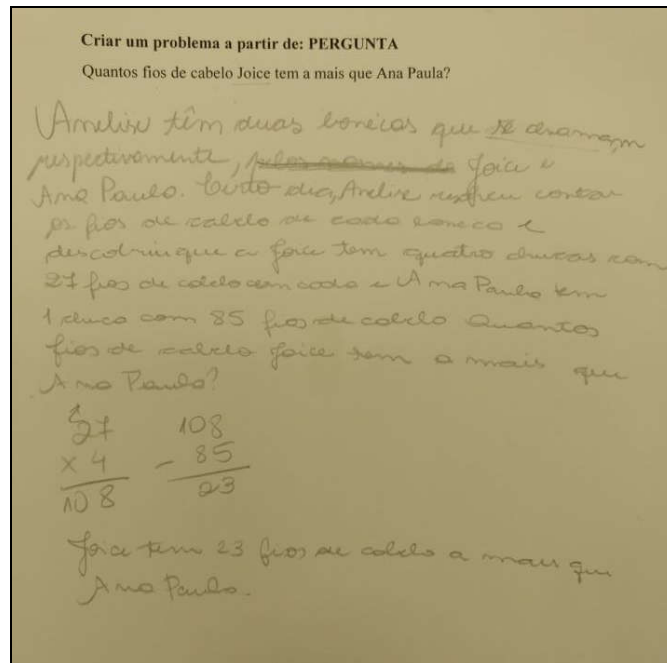 Criar um problema a partir de: PERGUNTA
Quantos fios de cabelo Joice tem a mais que Ana Paula?
Anelise têm duas bonecas que se chamam,
respectivamente, pelos nomes de Joice e
Ana Paula. Certo dia, Anelise resolveu contar
os fios de cabelo de cada boneca e
descobriu que a Joice tem quatro chucas com
27 fios de cabelo em cada e Ana Paula tem
1 chuca com 85 fios de cabelo Quantos
fios de cabelo Joice tem a mais que
Ana Paula?
27 108
x 4 - 85
108 23
Joice tem 23 fios de cabelo a mais que
Ana Paula.